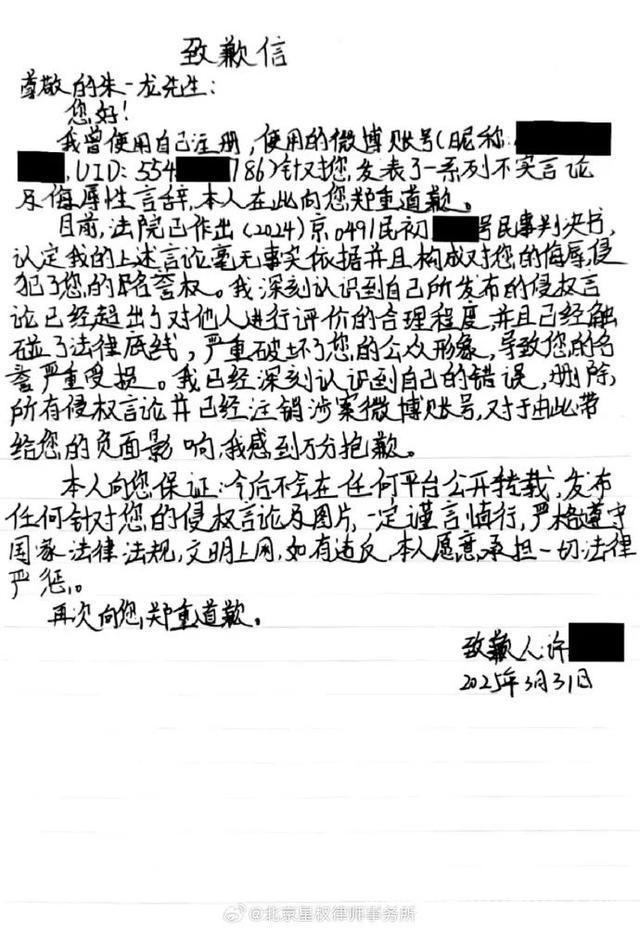 致歉信
尊敬的朱一龙先生：
您好！
我曾使用自己注册，使用的微博账号（昵称：
，UID：554 786）针对您，发表了一系列不实言论
及侮辱性言辞，本人在此向您郑重道歉。
目前，法院已作出（2024）京0491民初 号民事判决书，
认定我的上述言论毫无事实依据并且构成对您的侮辱，侵
犯了您的名誉权。我深刻认识到自己所发布的侵权言
论已经超出了对他人进行评价的合理程度，并且已经触
碰了法律底线，严重破坏了您的公众形象，导致您的名
誉严重受损。我已经深刻认识到自己的错误，删除，
所有侵权言论并已经注销涉案微博账号，对于由此带
给您的负面影响，我感到万分抱歉。
本人向您保证：今后不会在任何平台公开转载，发布
任何针对您的侵权言论及图片，一定谨言慎行，严格遵守
国家法律法规，文明上网，如有违反，本人愿意承担一切法律
严惩。
再次向您郑重道歉。
致歉人：许
2025年3月31日
@北京星权律师事务所